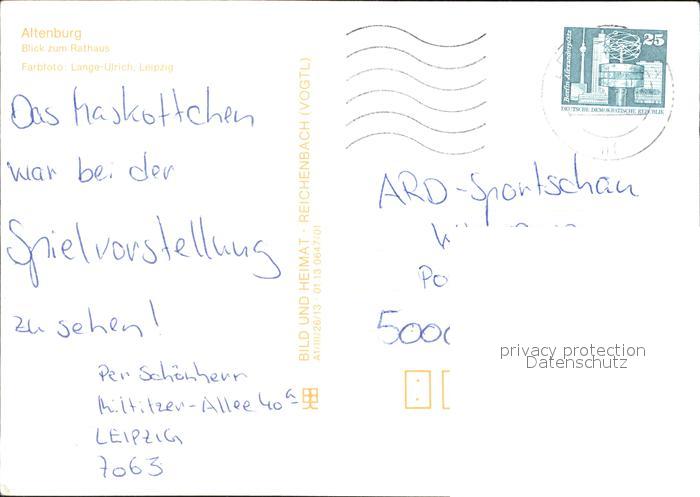 Altenburg
Blick zum Rathaus
Farbfoto: Lange-Ulrich, Leipzig
Das Maskottchen
war bei der
Spielvorstellung
zu sehen!
Per Schönherr
Miltitzer-Allee 40a
LEIPZIG
7063
BILD UND HEIMAT · REICHENBACH (VOGTL)
A1/III/26/13 · 01 13 0647/01
Berlin, Alexanderplatz
25
DEUTSCHE DEMOKRATISCHE REPUBLIK
ARD-Sportschau
Po
5000
privacy protection
Datenschutz